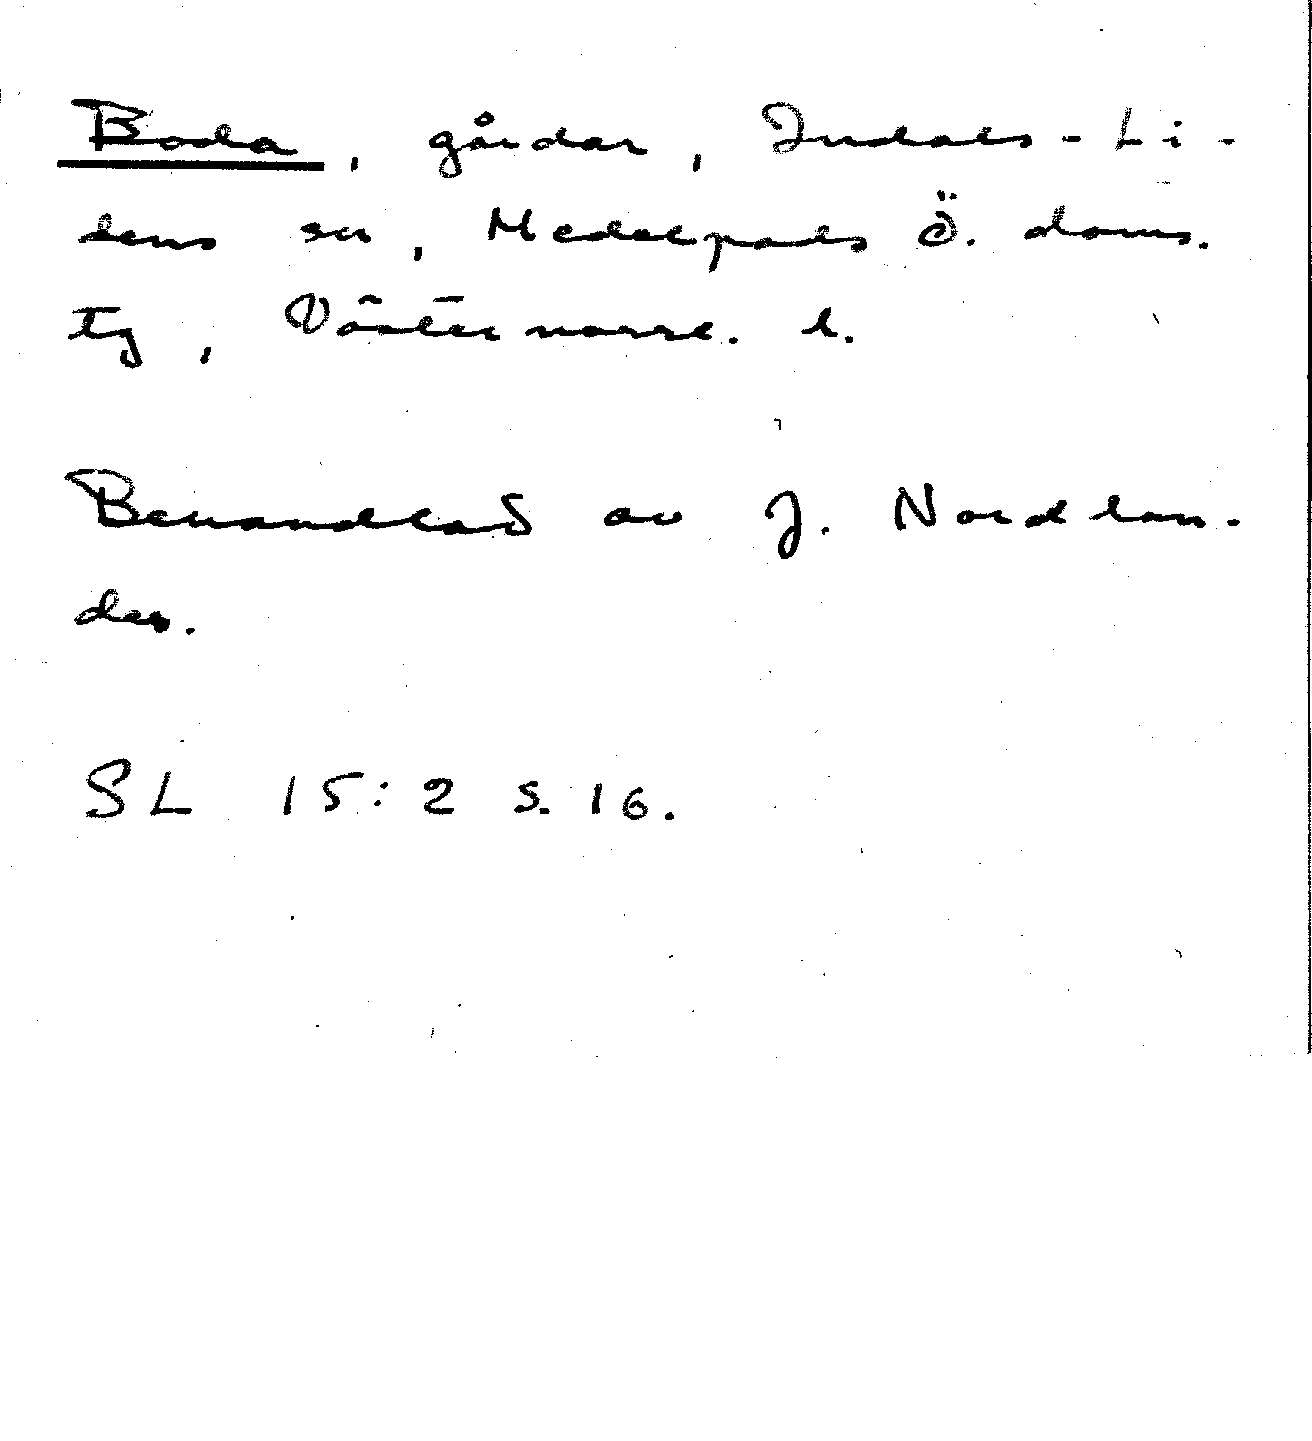 Boda, gårdar, Indals-Li-
dens sn, Medelpads Ö. doms.
tg, Västernorrl. l.
Behandlad av J. Nordlan-
der.
SL 15:2 s. 16.